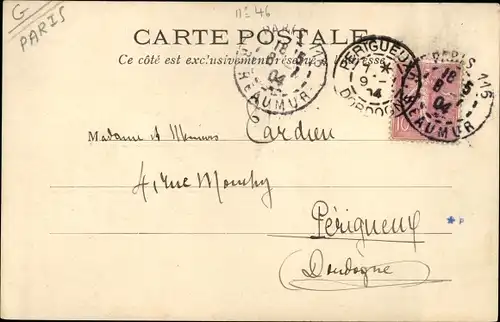 G
PARIS
n° 46
CARTE POSTALE
Ce côté est exclusivement réservé à l'adresse
PARIS 115
18 5
8
04
R. REAUMUR
PERIGUEUX
7 *
9
04
DORDOGNE
PARIS 115
18 5
8
04
R. REAUMUR
10
Madame et Monsieur Tardieu
4, rue Mouchy
Périgueux
Dordogne